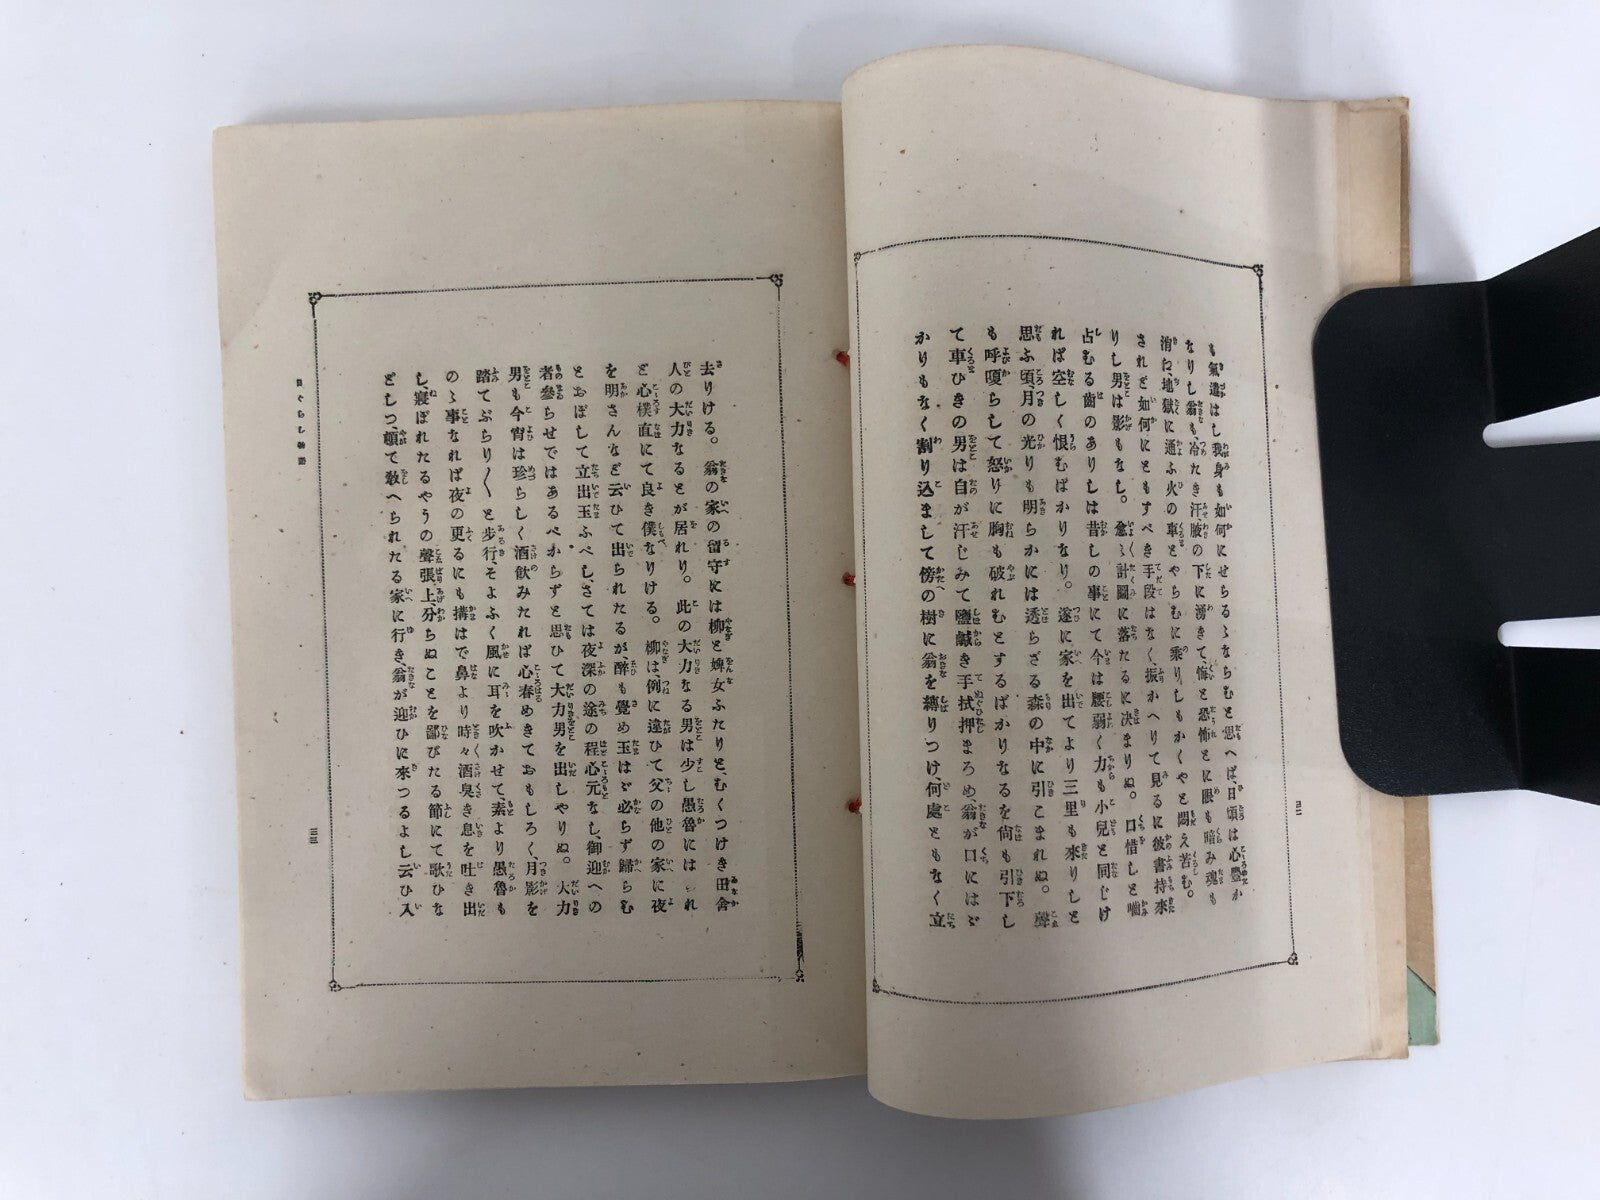 も氣遣はし我身も如何にせらるゝならむと思へば、日頃は心豊か
なりし翁も、冷たき汗腋の下に湧きて、悔と恐怖とに眼も暗み魂も
消ね、地獄に通ふ火の車とやらむに乗りしもかくやと悶え苦む。
されど如何にともすべき手段はなく、振かへりて見るに彼書持来
りし男は影もなし。愈〻計圖に落たるに決まりぬ。口惜しと嚙
占むる歯のありしは昔しの事にて今は腰弱く力も小兒と同じけ
れば空しく恨むばかりなり。遂に家を出てより三里も來りしと
思ふ頃、月の光りも明らかには透らざる森の中に引こまれぬ。聲
も呼嗄らして怒りに胸も破れむとするばかりなるを尙も引下し
て車ひきの男は自が汗じみて鹽鹹き手拭押まろめ、翁が口にはゞ
かりもなく割り込まして傍の樹に翁を縛りつけ、何處ともなく立
三二
去りける。翁の家の留守には柳と婢女ふたりと、むくつけき田舎
人の大力なるとが居れり。此の大力なる男は少し愚魯にはあれ
ど心樸直にて良き僕なりける。柳は、例に違ひて父の他の家に夜
を明さんなど云ひて出られたるが、醉も覺め玉はゞ必らず歸らむ
とおぼして立出玉ふべし、さては夜深の途の程心元なし、御迎への
者參らせではあるべからずと思ひて大力男を出しやりぬ。大力
男も今宵は珍らしく酒飲みたれば心春めきておもしろく、月影を
踏てぶらり〱と歩行、そよふく風に耳を吹かせて素より愚魯も
のゝ事なれば夜の更るにも搆はで鼻より時々酒臭き息を吐き出
し、寢ぼれたるやうの聲張上分らぬことを鄙びたる節にて歌ひな
どしつ、頓て敎へられたる家に行き、翁が迎ひに來つるよし云ひ入
日ぐらし物語
三三